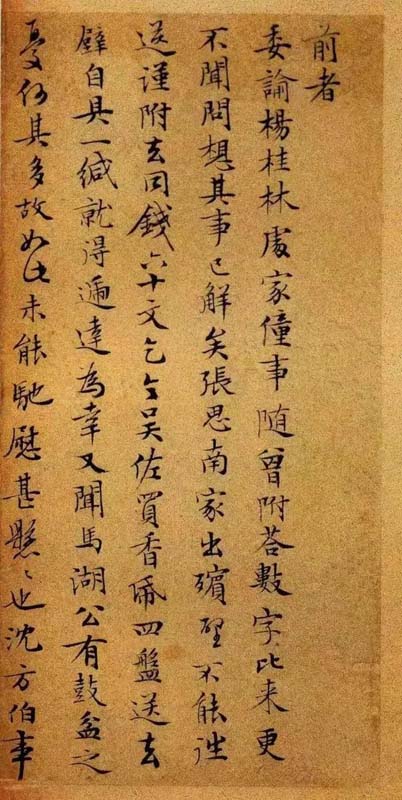 前者
委論楊桂林處家僮事随曾附荅數字比来更
不聞問想其事已解矣張思南家出殯璧不能往
送謹附去同錢六十文乞令吴佐買香帋四盤送去
璧自具一緘就得逓達為幸又聞馬湖公有鼓盆之
憂何其多故如此未能馳慰甚懸〻也沈方伯事